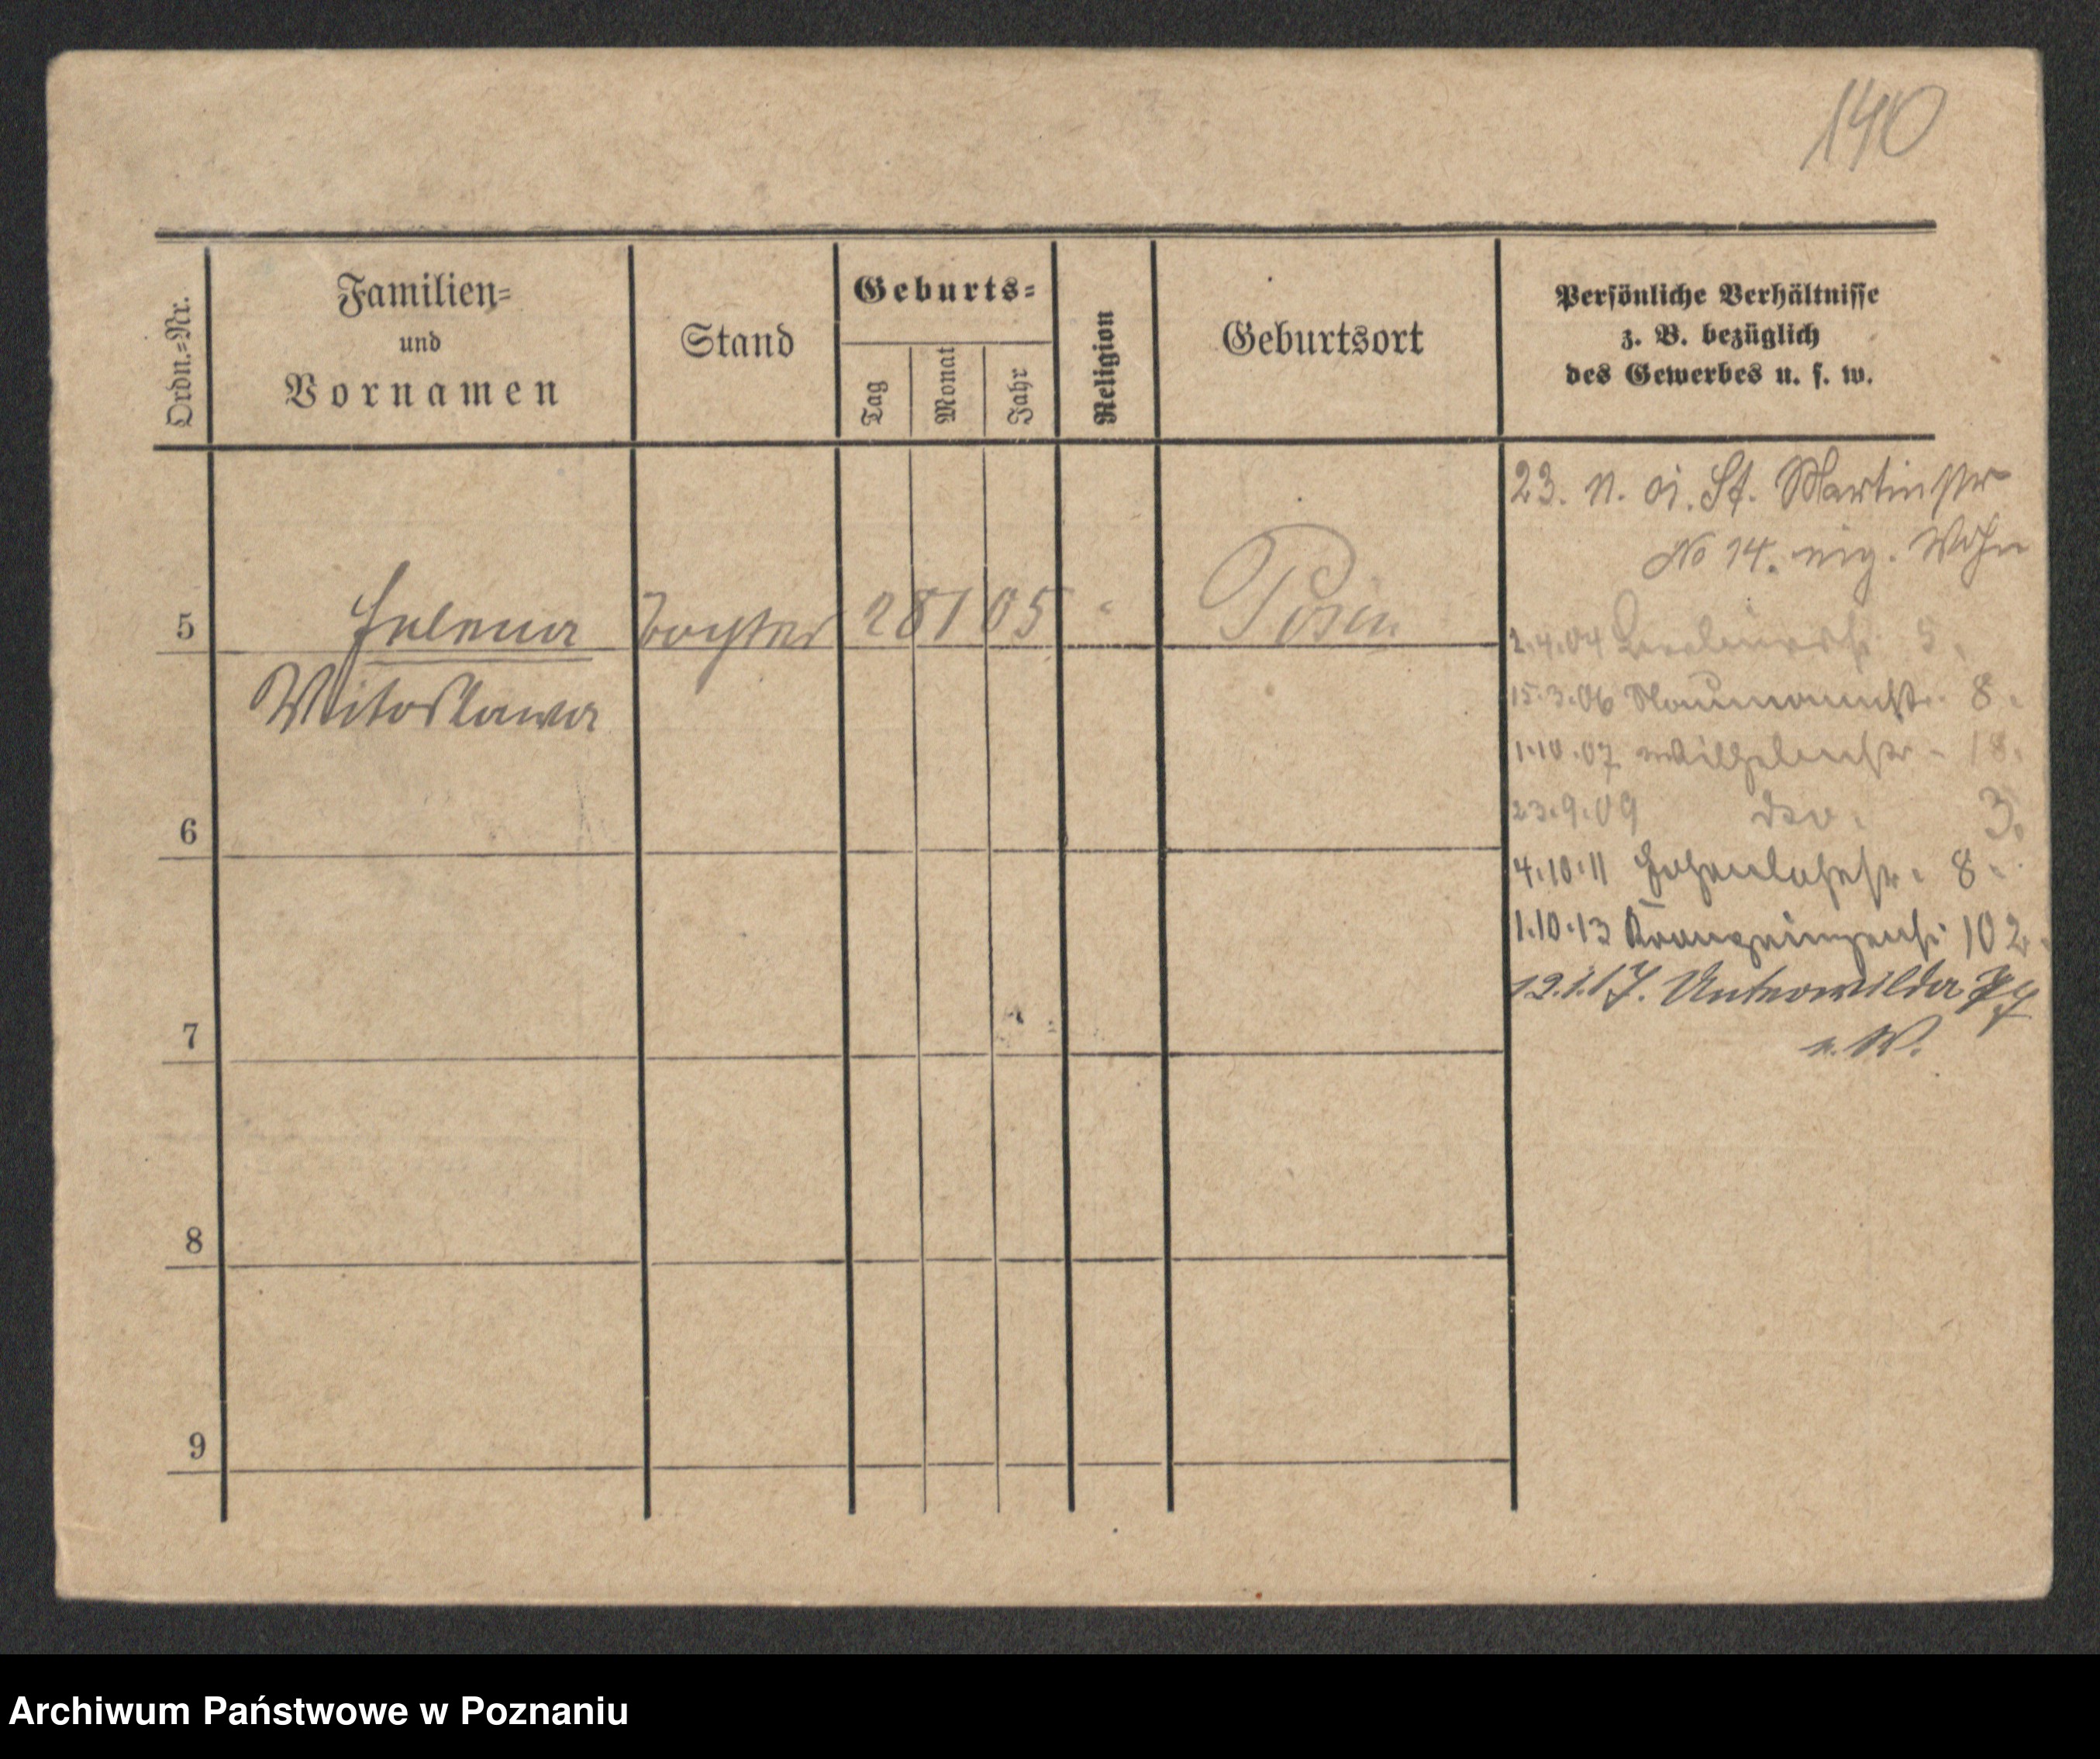 140
Ordn.=Nr.
Familien=
und
Vornamen
Stand
Geburts=
Tag
Monat
Jahr
Religion
Geburtsort
Persönliche Verhältnisse
z. B. bezüglich
des Gewerbes u. s. w.
23. 11. 01. St. Martinstr
No 14. eig. Wohn
5 Helena Tochter 28 1 05 " Posen
Witoslawa
2.4.04 5.
15.3.06 Naumannstr. 8.
1.10.07 Wilhelmstr. 18.
23.9.09 dso. 3.
4.10.11 Hohenlohestr. 8.
1.10.13 Kronprinzenstr. 102.
12.1.17. Unterwilda
n. W.
6
7
8
9
Archiwum Państwowe w Poznaniu